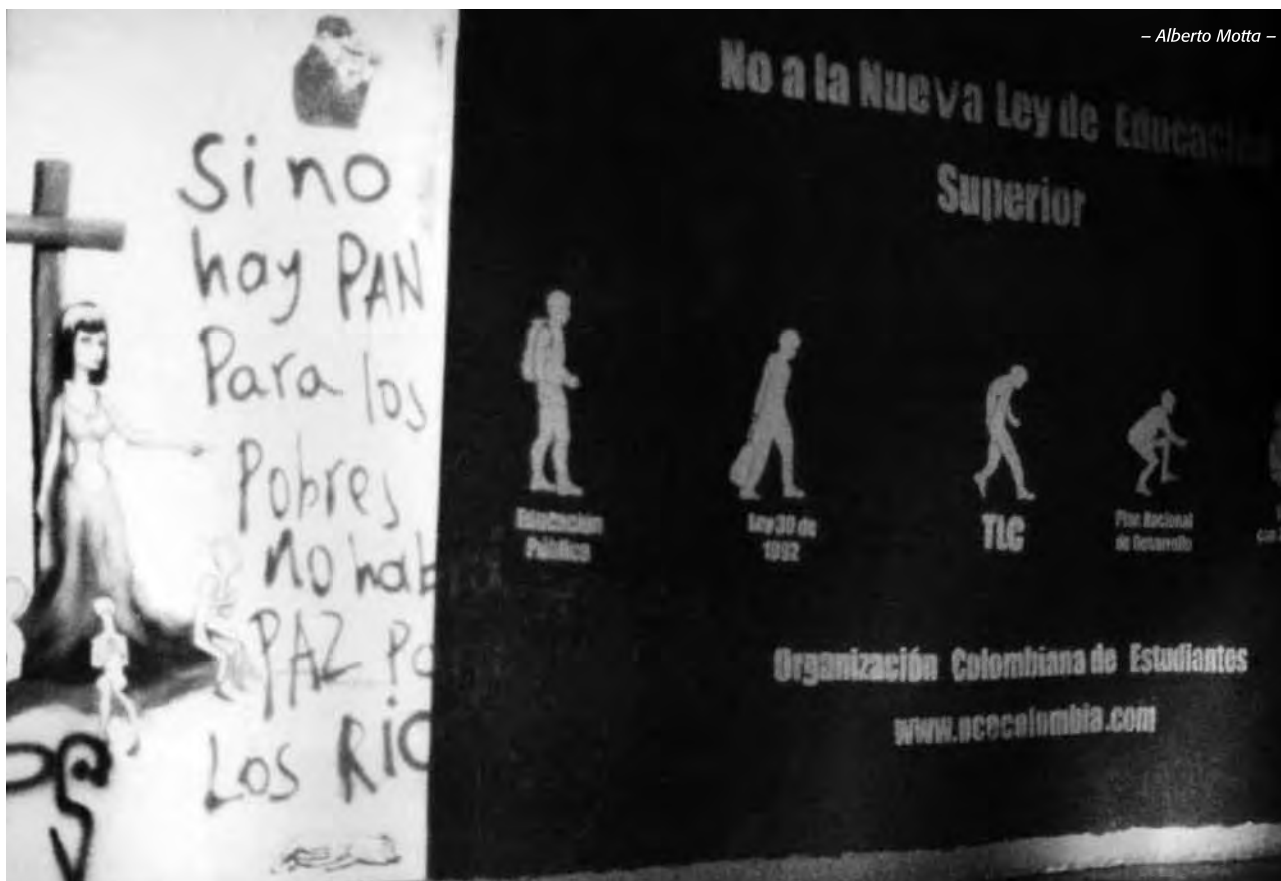 – Alberto Motta –
Si no
hay PAN
Para los
Pobres
no hab
PAZ Pa
Los RIC
No a la Nueva Ley de Educación
Superior
Educación
Pública
Ley 30 de
1992
TLC
Plan Nacional
de Desarrollo
Organización Colombiana de Estudiantes
www.ocecolombia.com